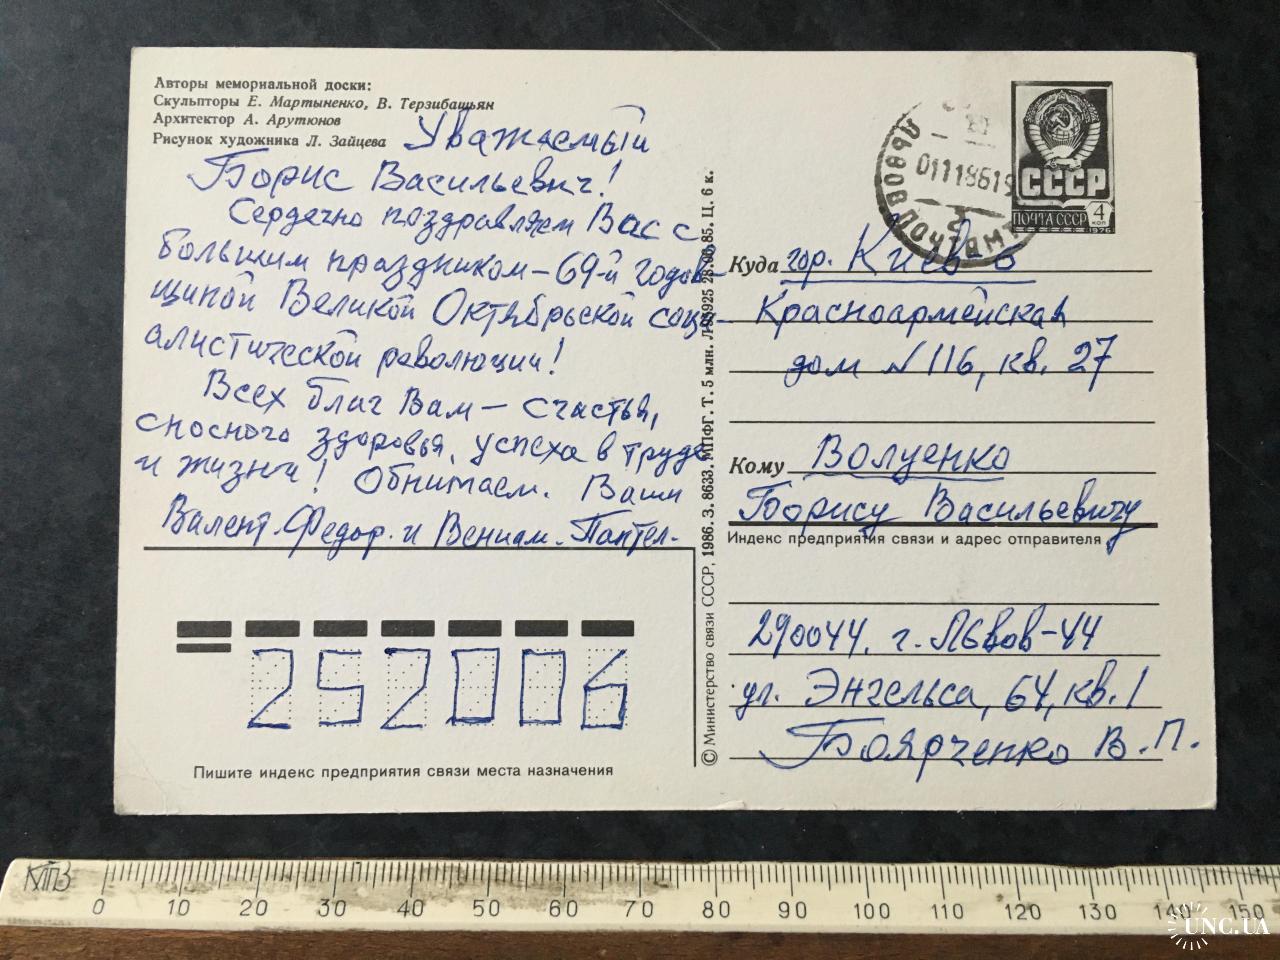 Авторы мемориальной доски:
Скульпторы Е. Мартыненко, В. Терзибашьян
Архитектор А. Арутюнов
Рисунок художника Л. Зайцева
Уважаемый
Борис Васильевич!
Сердечно поздравляем Вас с
большим праздником – 69-й годов-
щиной Великой Октябрьской соци-
алистической революции!
Всех благ Вам – счастья,
сносного здоровья, успеха в труде
и жизни! Обнимаем. Ваши
Валент. Федор. и Вениам. Пантел.
Пишите индекс предприятия связи места назначения
252006
© Министерство связи СССР, 1986. З. 8633. МПФГ. Т. 5 млн. Ц. 6 к.
ЛЬВОВ ПОЧТАМТ
01118619
СССР
ПОЧТА СССР 4 коп
1976
Куда гор. Киев-6
Красноармейская
дом №116, кв. 27
Кому Волуенко
Борису Васильевичу
Индекс предприятия связи и адрес отправителя
290044, г. Львов-44
ул. Энгельса, 64, кв. 1
Боярченко В. П.
КПЗ
0 10 20 30 40 50 60 70 80 90 100 110 120 130 140 150
UNC.UA